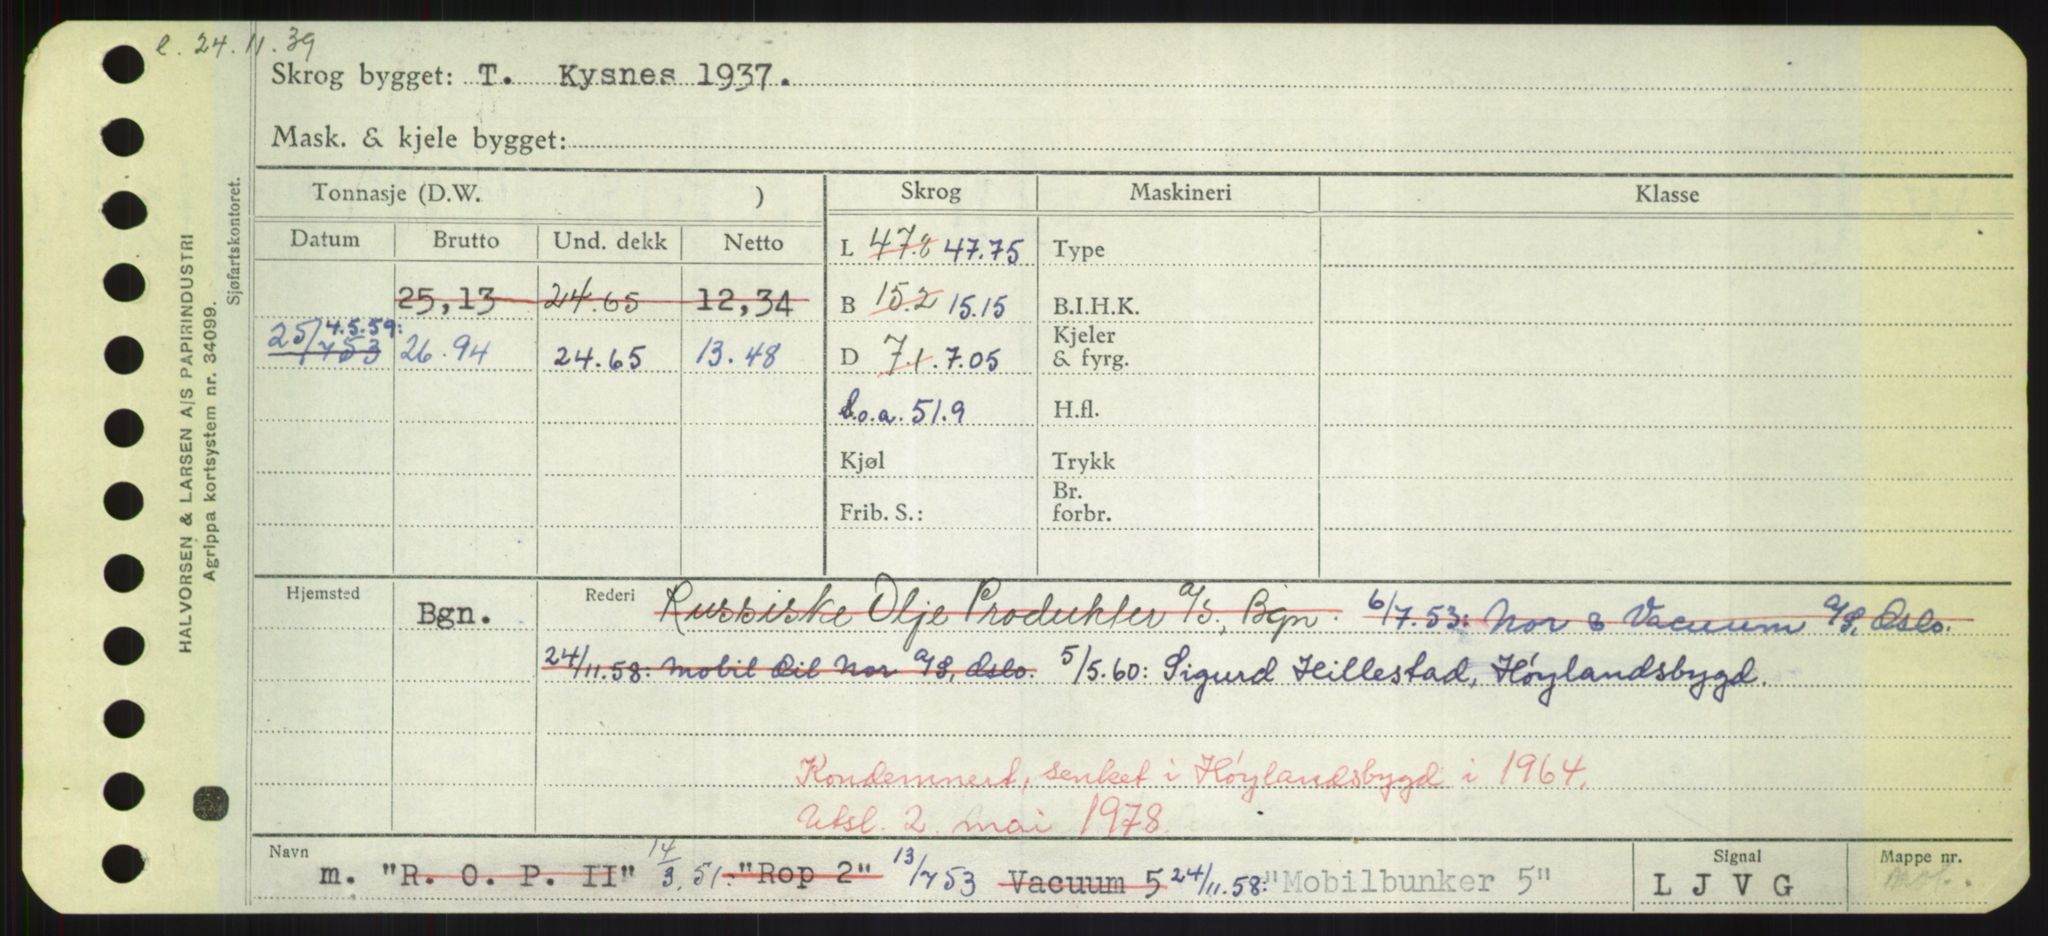 e. 24.11.39
Skrog bygget: T. Kysnes 1937.
Mask. & kjele bygget:
HALVORSEN & LARSEN A/S PAPIRINDUSTRI
Agrippa kortsystem nr. 34099.
Sjøfartskontoret.
Tonnasje (D.W. ) Skrog Maskineri Klasse
Datum Brutto Und. dekk Netto L 47.8 47.75 Type
25,13 24.65 12,34 B 15.2 15.15 B.I.H.K.
25/753 4.5.59: 26.94 24.65 13.48 D 7.1. 7.05 Kjeler & fyrg.
L.o.a. 51.9 H.fl.
Kjøl Trykk
Frib. S.: Br. forbr.
Hjemsted Bgn. Rederi Russiske Olje Produkter A/S, Bgn. 6/7.53: Nor & Vacuum A/S, Oslo.
24/11.58: Mobil Oil Nor A/S, Oslo. 5/5.60: Sigurd Hillestad, Høylandsbygd.
Kondemnert, senket i Høylandsbygd i 1964.
Utsl. 2. mai 1978.
Navn Signal Mappe nr.
m. "R. O. P. II" 14/3.51: "Rop 2" 13/753 Vacuum 5 24/11.58: "Mobilbunker 5" L J V G